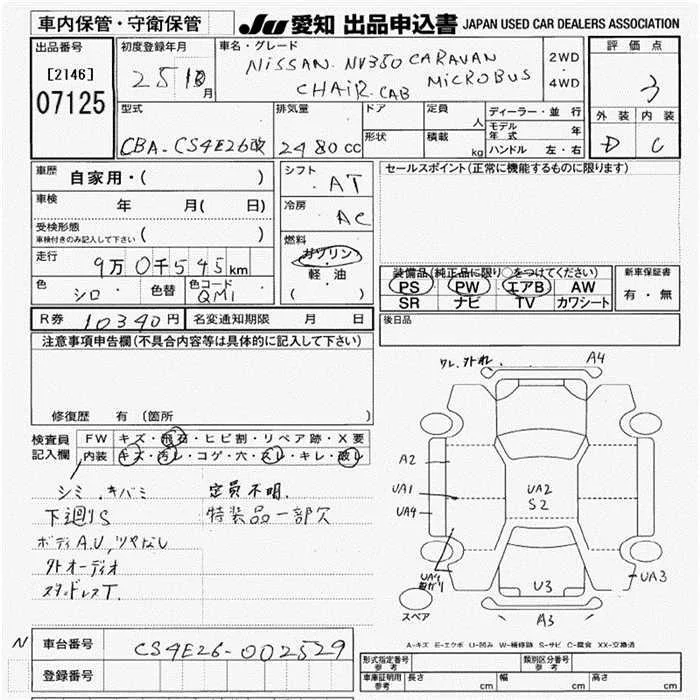 車内保管・守衛保管
JU 愛知 出品申込書 JAPAN USED CAR DEALERS ASSOCIATION
出品番号
[2146]
07125
初度登録年月
25 月
車名・グレード
NISSAN NV350 CARAVAN
CHAIR CAB MICROBUS
2WD
・
4WD
評価点
3
外装 内装
D C
型式
CBA-CS4E26改
排気量
2480 CC
ドア
形状
定員 人
積載 kg
ディーラー・並行
モデル年式 年
ハンドル 左・右
車歴 自家用・( )
車検 年 月( 日)
受検形態
車検付きのみ記入して下さい ( )
走行 9万0千545km
色 シロ 色替 色コード QM1
シフト AT
冷房 AC
燃料
ガソリン
・
軽油
( )
セールスポイント(正常に機能するものに限ります)
装備品(純正品に限り○をつけてください)
PS PW エアB AW
SR ナビ TV カワシート
新車保証書
有・無
R券 10340円 名変通知期限 月 日
後日品
注意事項申告欄(不具合内容等は具体的に記入して下さい)
修復歴 有(箇所 )
検査員記入欄
FW キズ・飛石・ヒビ割・リペア跡・X要
内装 キズ・汚レ・コゲ・穴・スレ・キレ・破レ
シミ、キバミ 定員不明.
下廻りS 特装品一部欠
ボディA.U,ツヤなし
外オーディオ
スタッドレスT.
ワレ,外レ A4
A2
UA1
UA4
UA2
S2
UA4
U3
UA3
A3
スペア
A-キズ E-エクボ U-凹み W-補修跡 S-サビ C-腐食 XX-交換済
N
車台番号 CS4E26-002529
登録番号
形式指定番号 参考
類別区分番号 参考
車庫証明用 参考 長さ cm 幅 cm 高さ cm